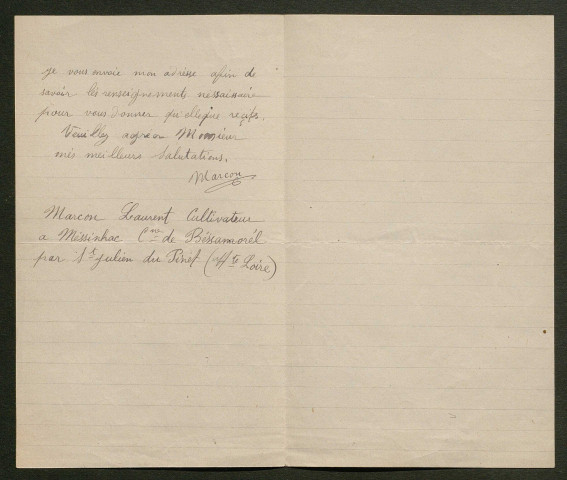 je vous envoie mon adrèsse afin de
savoir les renseignements nessaissaire
pour vous donner quellque reçits.
Veuillez agréer Monsieur
mes meilleurs Salutations.
Marcon
Marcon Laurent Cultivateur
a Méssinhac Cne de Béssamorél
par St julien du Pinet (Hte Loire)